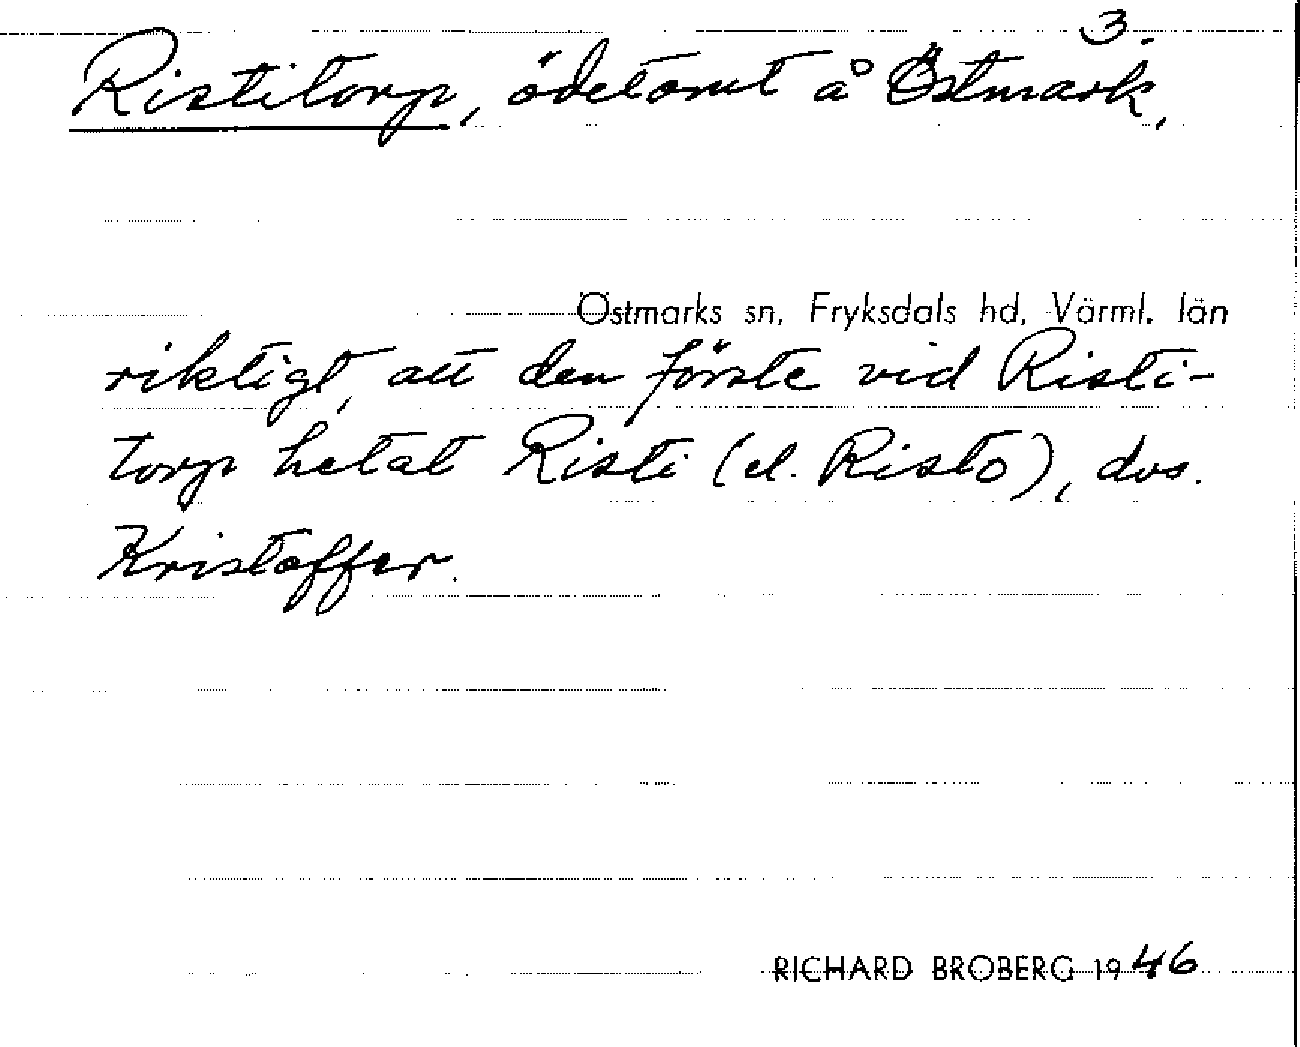 3.
Ristitorp, ödetomt å Östmark.
Östmarks sn, Fryksdals hd, Värml. län
riktigt, att den förste vid Risti-
torp hetat Risti (el. Risto), dvs.
Kristoffer.
RICHARD BROBERG 1946